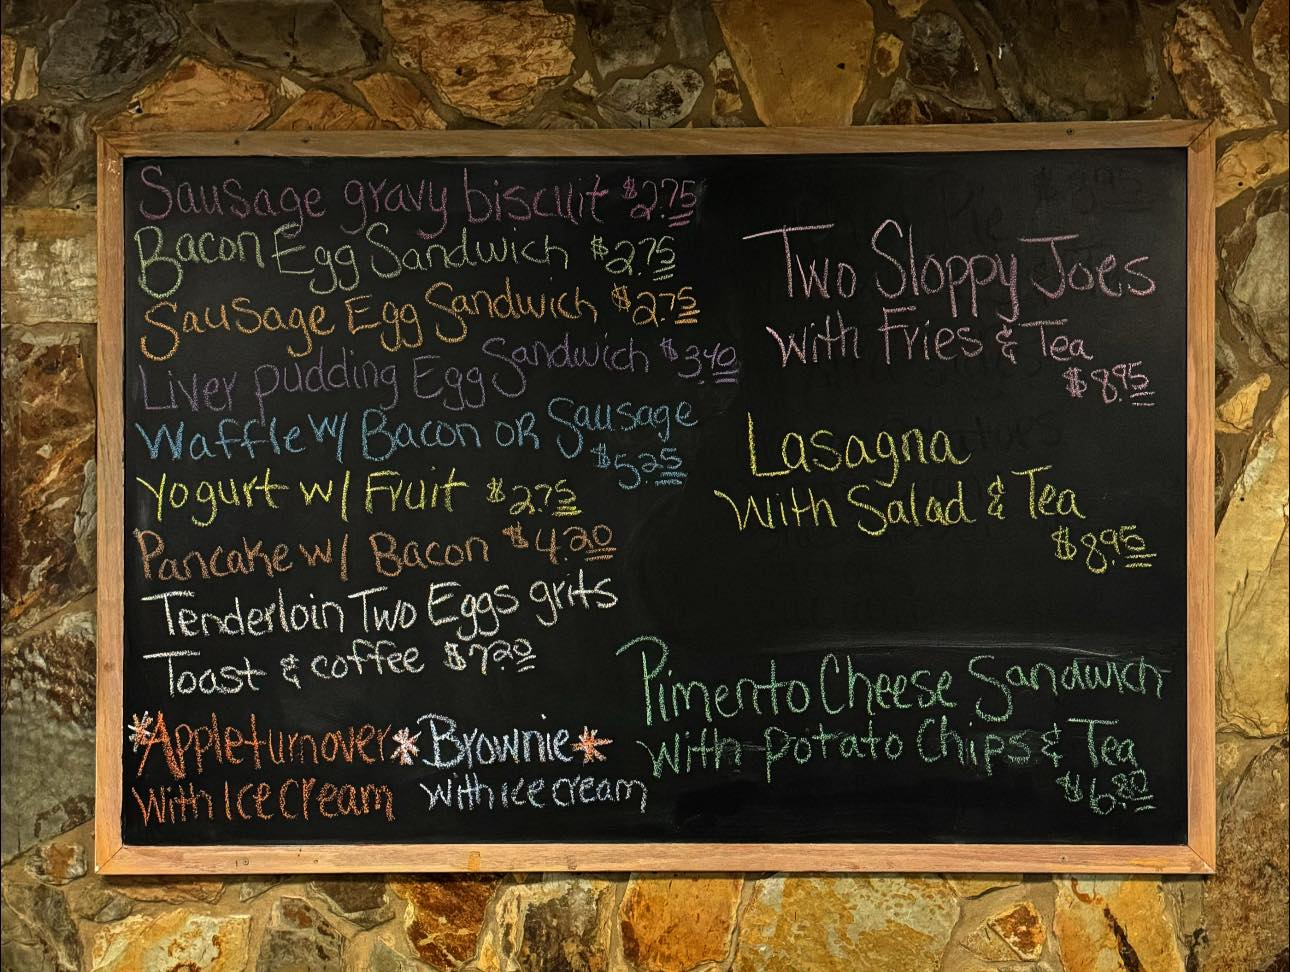 Sausage gravy biscuit $2.75
Bacon Egg Sandwich $2.75
Sausage Egg Sandwich $2.75
Liver pudding Egg Sandwich $3.40
Waffle w/ Bacon or Sausage
$5.25
Yogurt w/ Fruit $2.75
Pancake w/ Bacon $4.20
Tenderloin Two Eggs grits
Toast & coffee $7.20
*Apple turnover*
With Ice Cream
Brownie*
with ice cream
Two Sloppy Joes
With Fries & Tea
$8.95
Lasagna
With Salad & Tea
$8.95
Pimento Cheese Sandwich
with potato Chips & Tea
$6.80